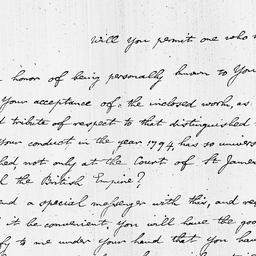 Will you permit one who
honor of being personally known to You
Your acceptance of the inclosed work, as
tribute of respect to that distinguished
your conduct in the year 1794 has so univers
hed not only at the Court of St James
the British Empire?
a special messenger with this, and re
it be convenient, you will have the good
to me under your hand that you have